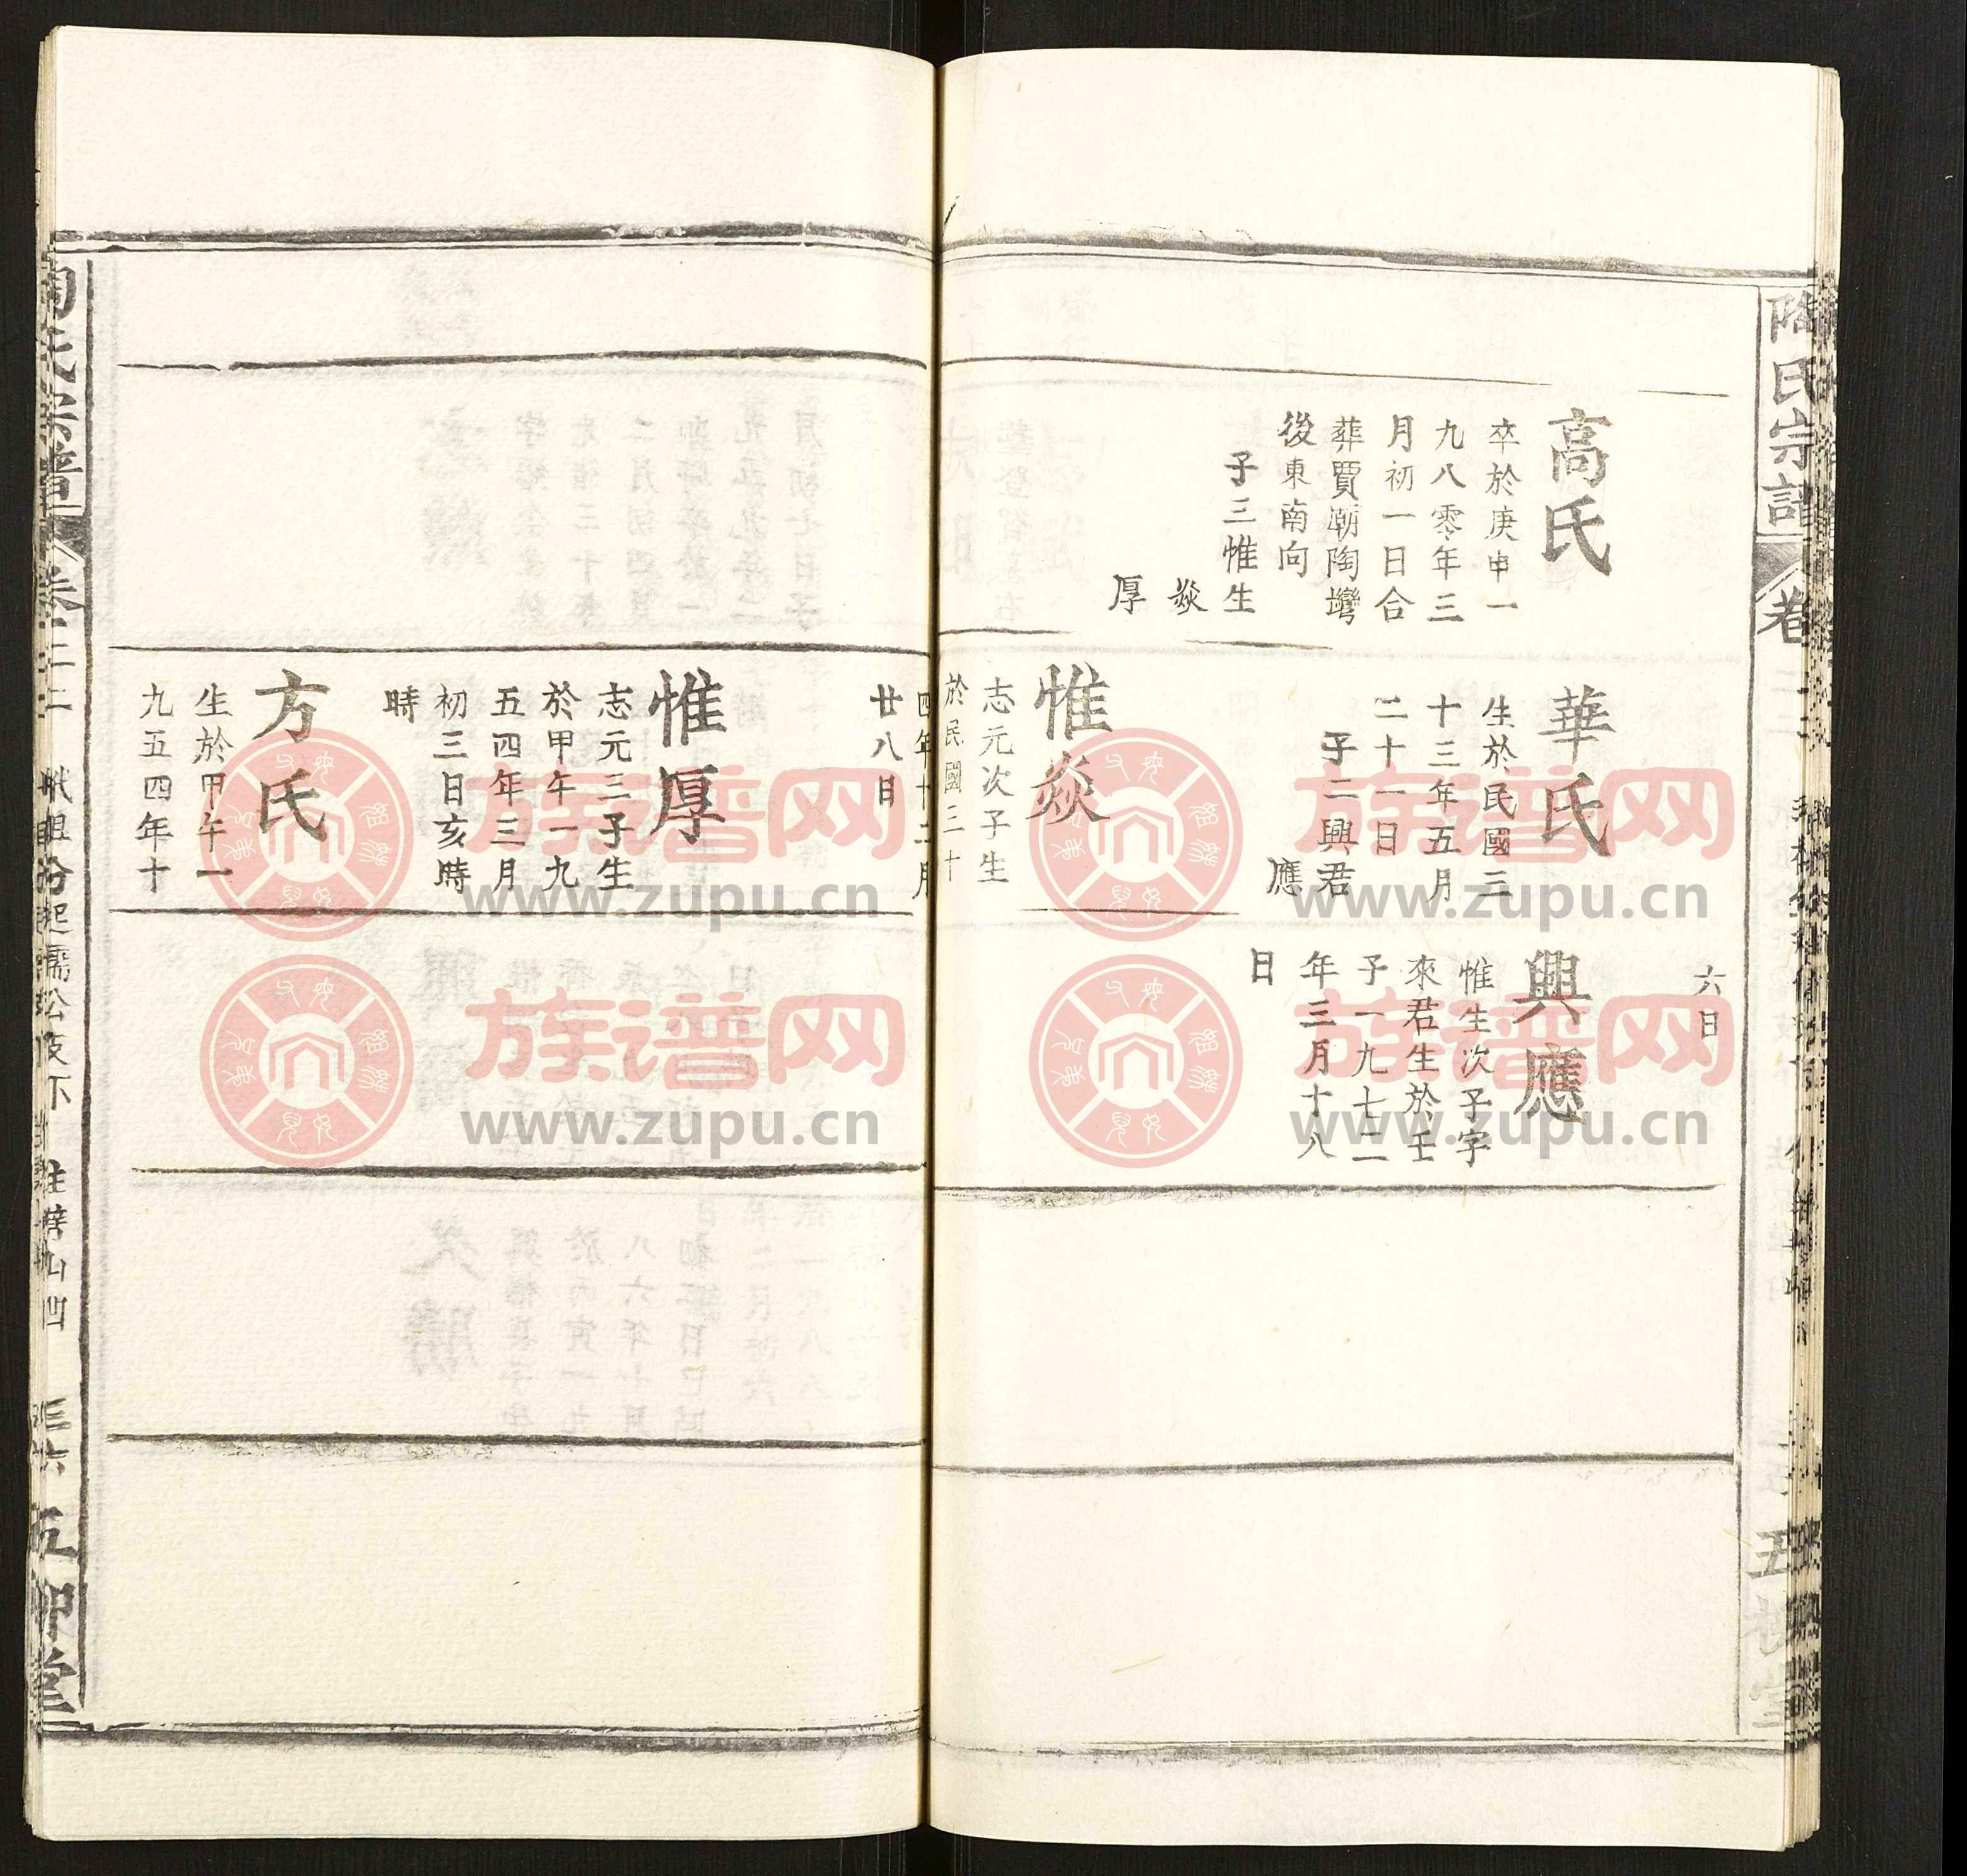 陶氏宗譜
卷二二
高氏
卒於庚申一
九八零年三
月初一日合
葬賈廟陶塆
後東南向
子三惟生
焱
厚
華氏
生於民國三
十三年五月
二十一日
子二興君
應
惟焱
志元次子生
於民國三十
六日
興應
惟生次子字
來君生於壬
子一九七二
年三月十八
日
四年十二月
廿八日
惟厚
志元三子生
於甲午一九
五四年三月
初三日亥時
時
方氏
生於甲午一
九五四年十
陶氏宗譜
卷二二
起孺公支下
五柳堂
族谱网
www.zupu.cn
族谱网
www.zupu.cn
族谱网
www.zupu.cn
族谱网
www.zupu.cn